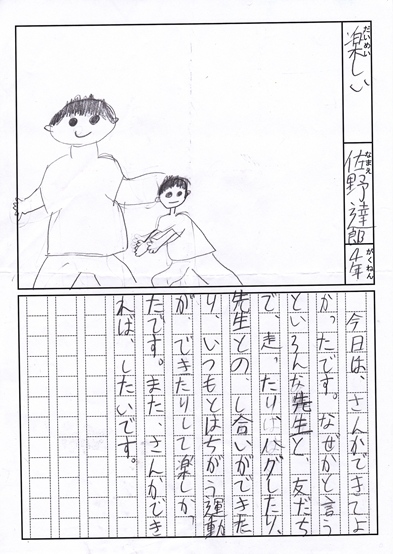 だいめい
楽しい
なまえ
佐野達郎
がくねん
4年
今日は、さんかできてよ
かったです。なぜかと言う
といろんな先生と、友だち
で、走ったり、ハグしたり、
先生との、し合いができた
り、いつもとはちがう運動
が、できたりして楽しかっ
たです。また、さんかでき
れば、したいです。